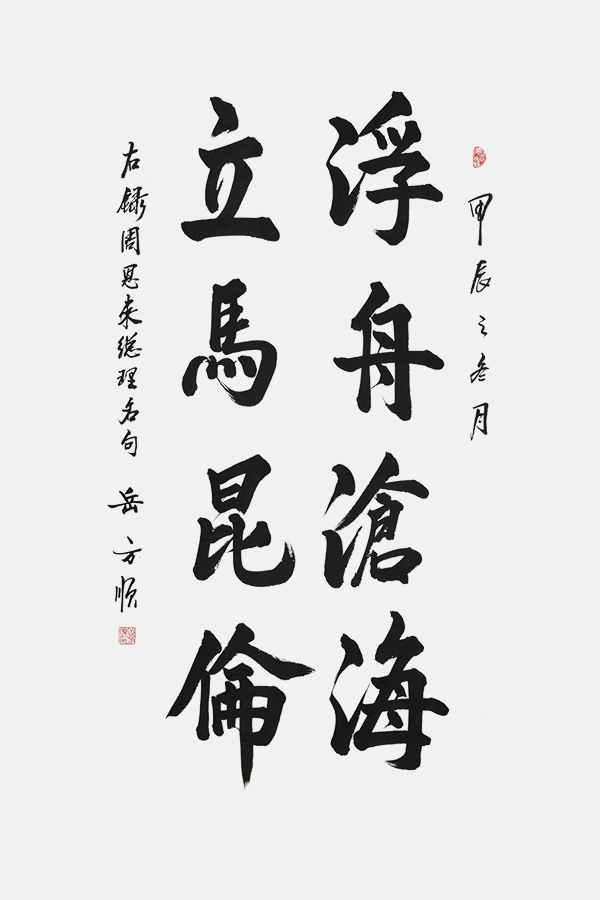 甲辰之冬月
浮舟滄海
立馬昆倫
右録周恩来総理名句 岳方順